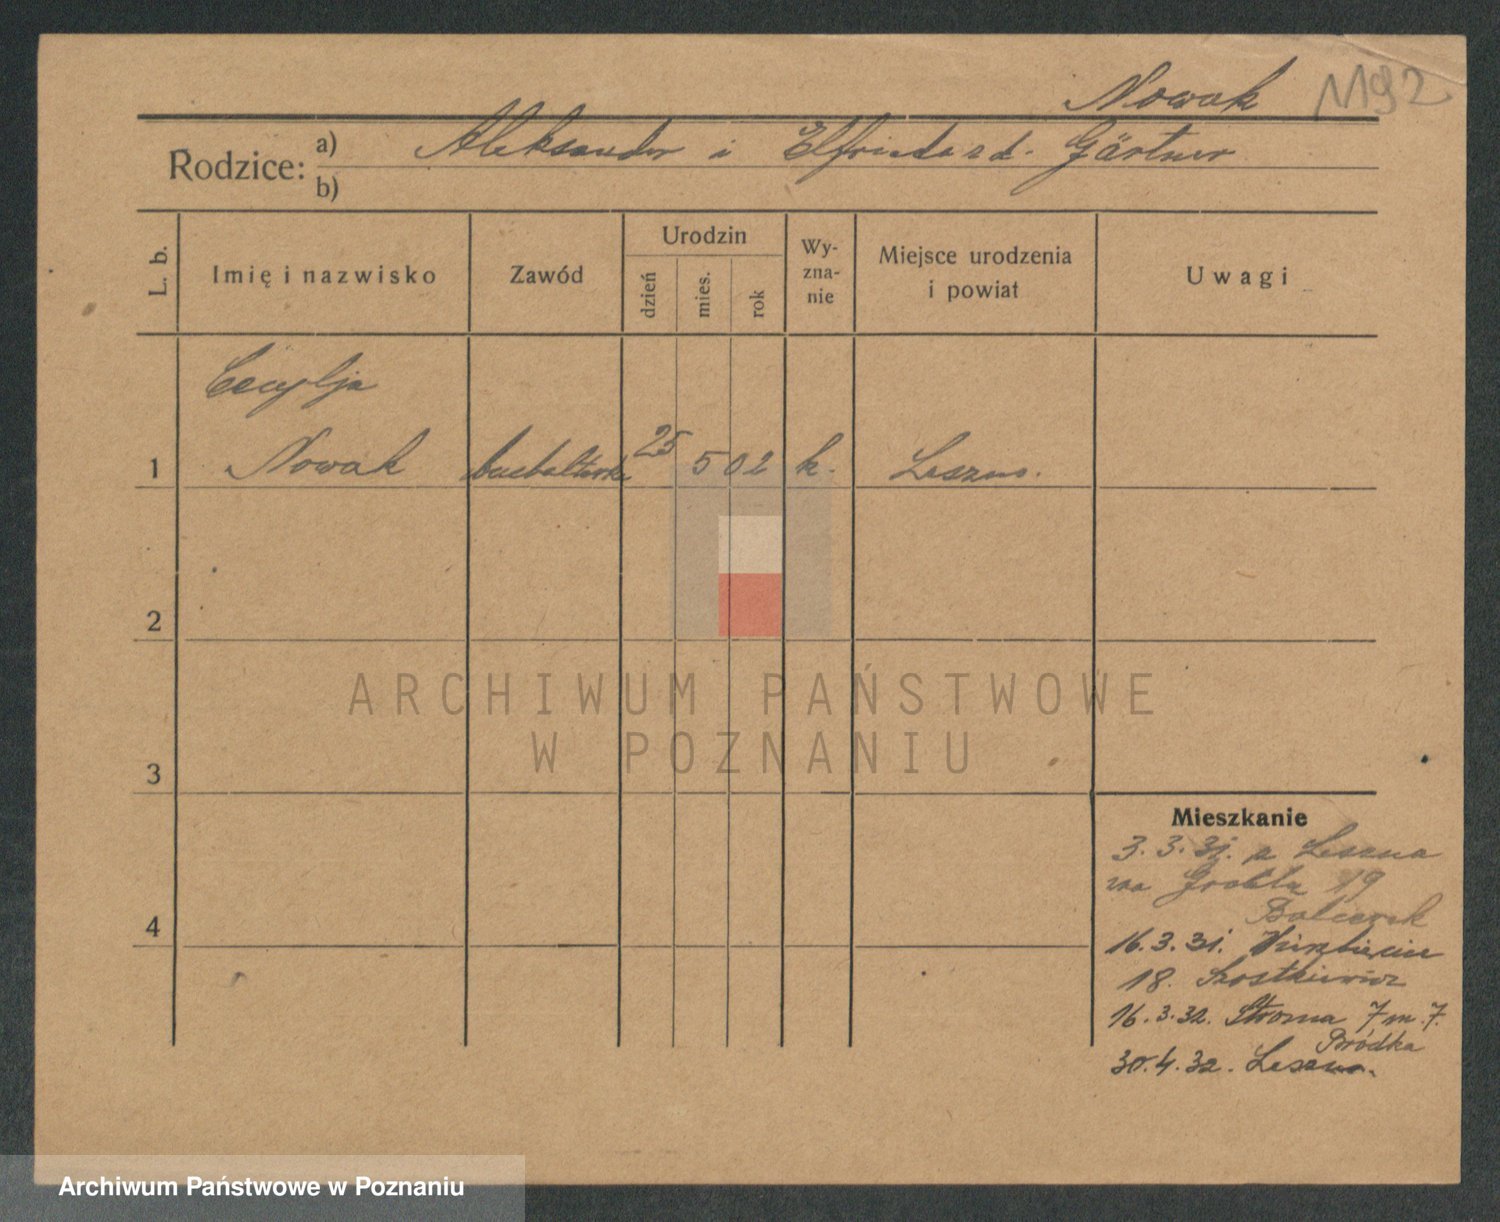 Nowak
1192
Rodzice: a) Aleksander i Elfrieda z d. Gärtner
b)
L. b.
Imię i nazwisko
Zawód
Urodzin
dzień
mies.
rok
Wy-
zna-
nie
Miejsce urodzenia
i powiat
Uwagi
Cecylja
1 Nowak buchalterka 25 5 02 k. Leszno.
2
3
4
Mieszkanie
3.3.31. z Leszna
na Grobla 19
Balcerek
16.3.31. Wierzbięcice
18. Szostkiewicz
16.3.32. Stroma 7 m. 7.
Bródka
30.4.32. Leszno.
ARCHIWUM PAŃSTWOWE
W POZNANIU
Archiwum Państwowe w Poznaniu